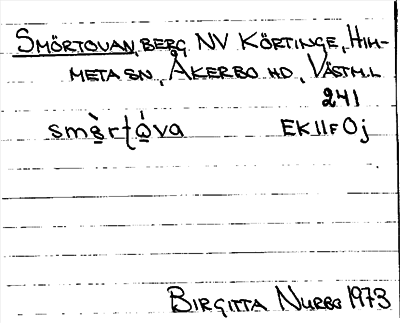 SMÖRTOVAN, BERG NV KÖRTINGE, HIM-
META SN, ÅKERBO HD, VÄSTM.L
241
smə̀rʈə̀va EK 11F 0j
BIRGITTA NURBO 1973